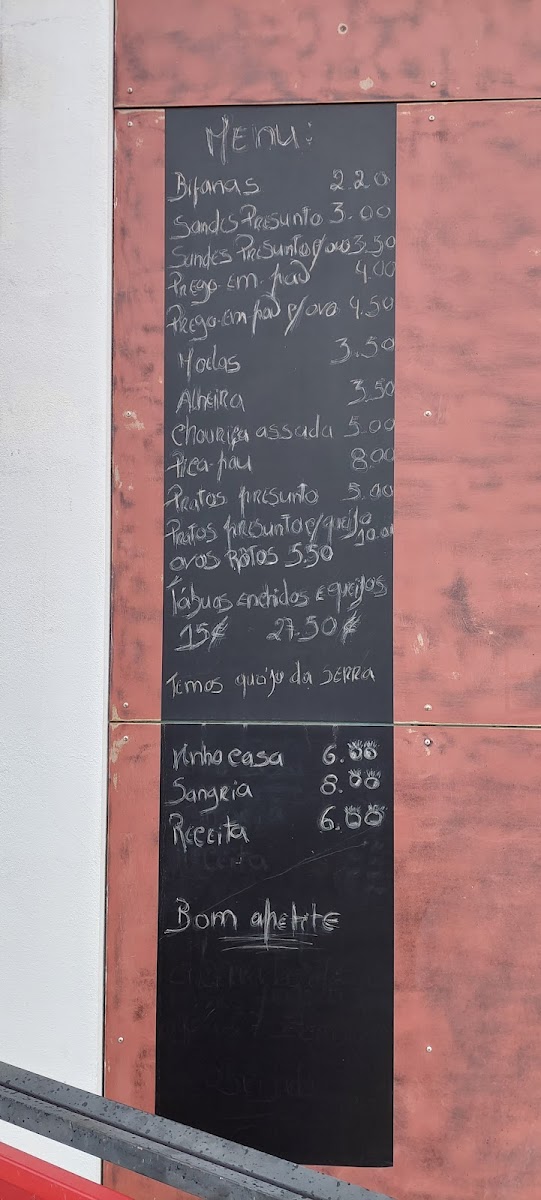 MENU:
Bifanas 2.20
Sandes Presunto 3.00
Sandes Presunto c/ovo 3.50
Prego em pao 4.00
Prego em pao c/ovo 4.50
Moelas 3.50
Alheira 3.50
Chouriça assada 5.00
Pica-pau 8.00
Pratos presunto 5.00
Pratos presunto c/queijo 10.00
ovos Rotos 5.50
Tábuas enchidos e queijos
15€ 27.50€
Temos queijo da SERRA
Vinho casa 6.00
Sangria 8.00
Receita 6.00
Bom apetite